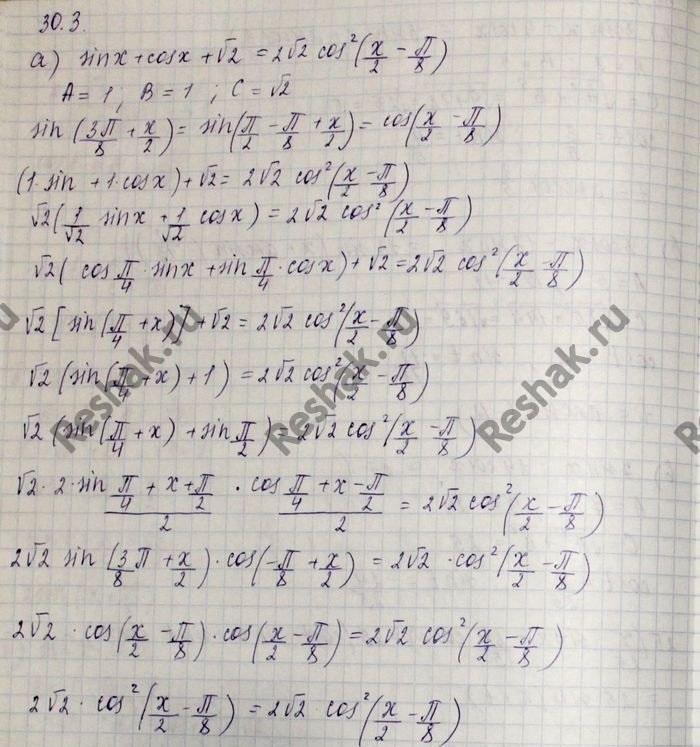 30.3.
а) sinx + cosx + √2 = 2√2 cos²(x/2 - π/8)
A = 1 ; B = 1 ; C = √2
sin(3π/8 + x/2) = sin(π/2 - π/8 + x/2) = cos(x/2 - π/8)
(1·sin + 1·cosx) + √2 = 2√2 cos²(x/2 - π/8)
√2(1/√2 sinx + 1/√2 cosx) = 2√2 cos²(x/2 - π/8)
√2(cos π/4 · sinx + sin π/4 · cosx) + √2 = 2√2 cos²(x/2 - π/8)
√2[sin(π/4 + x)] + √2 = 2√2 cos²(x/2 - π/8)
√2(sin(π/4 + x) + 1) = 2√2 cos²(x/2 - π/8)
√2(sin(π/4 + x) + sin π/2) = 2√2 cos²(x/2 - π/8)
√2 · 2 · sin (π/4 + x + π/2)/2 · cos (π/4 + x - π/2)/2 = 2√2 cos²(x/2 - π/8)
2√2 sin(3/8 π + x/2) · cos(-π/8 + x/2) = 2√2 · cos²(x/2 - π/8)
2√2 · cos(x/2 - π/8) · cos(x/2 - π/8) = 2√2 cos²(x/2 - π/8)
2√2 · cos²(x/2 - π/8) = 2√2 · cos²(x/2 - π/8)
Reshak.ru
Reshak.ru
Reshak.ru